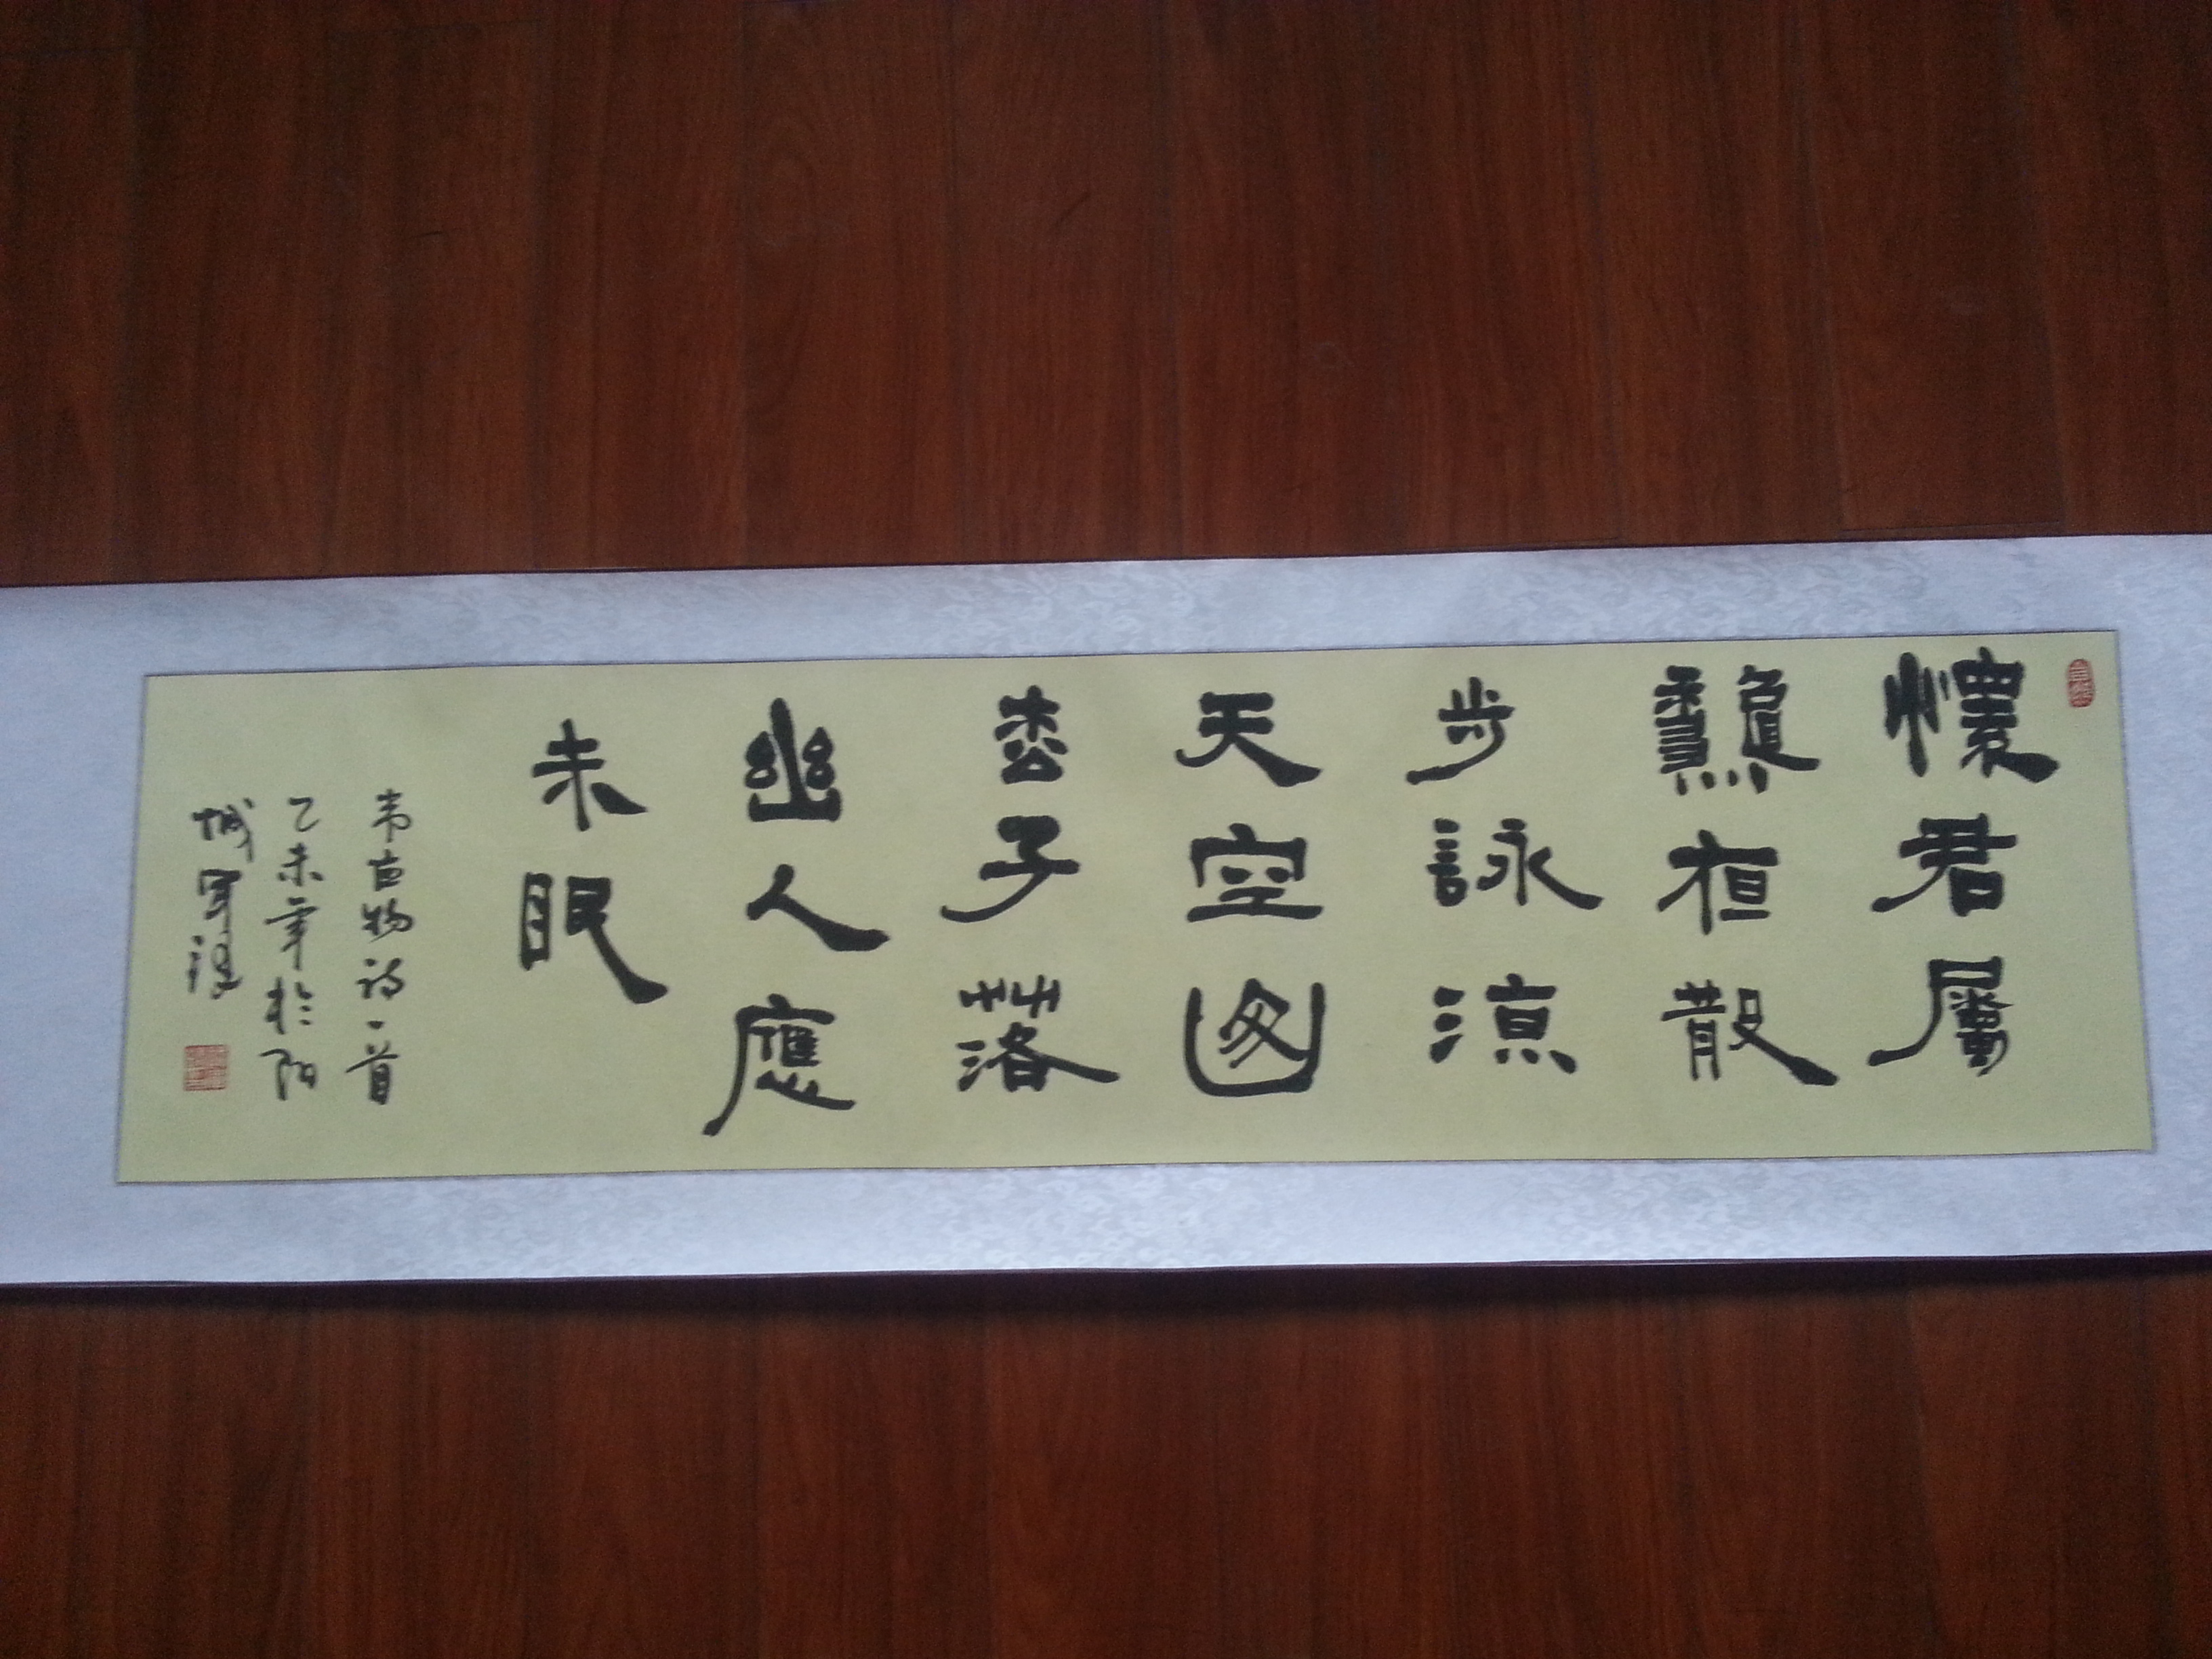 懷君屬
龝夜散
步詠涼
天空山
枩子落
幽人應
未眠
韦应物诗一首
乙未年於阳
城